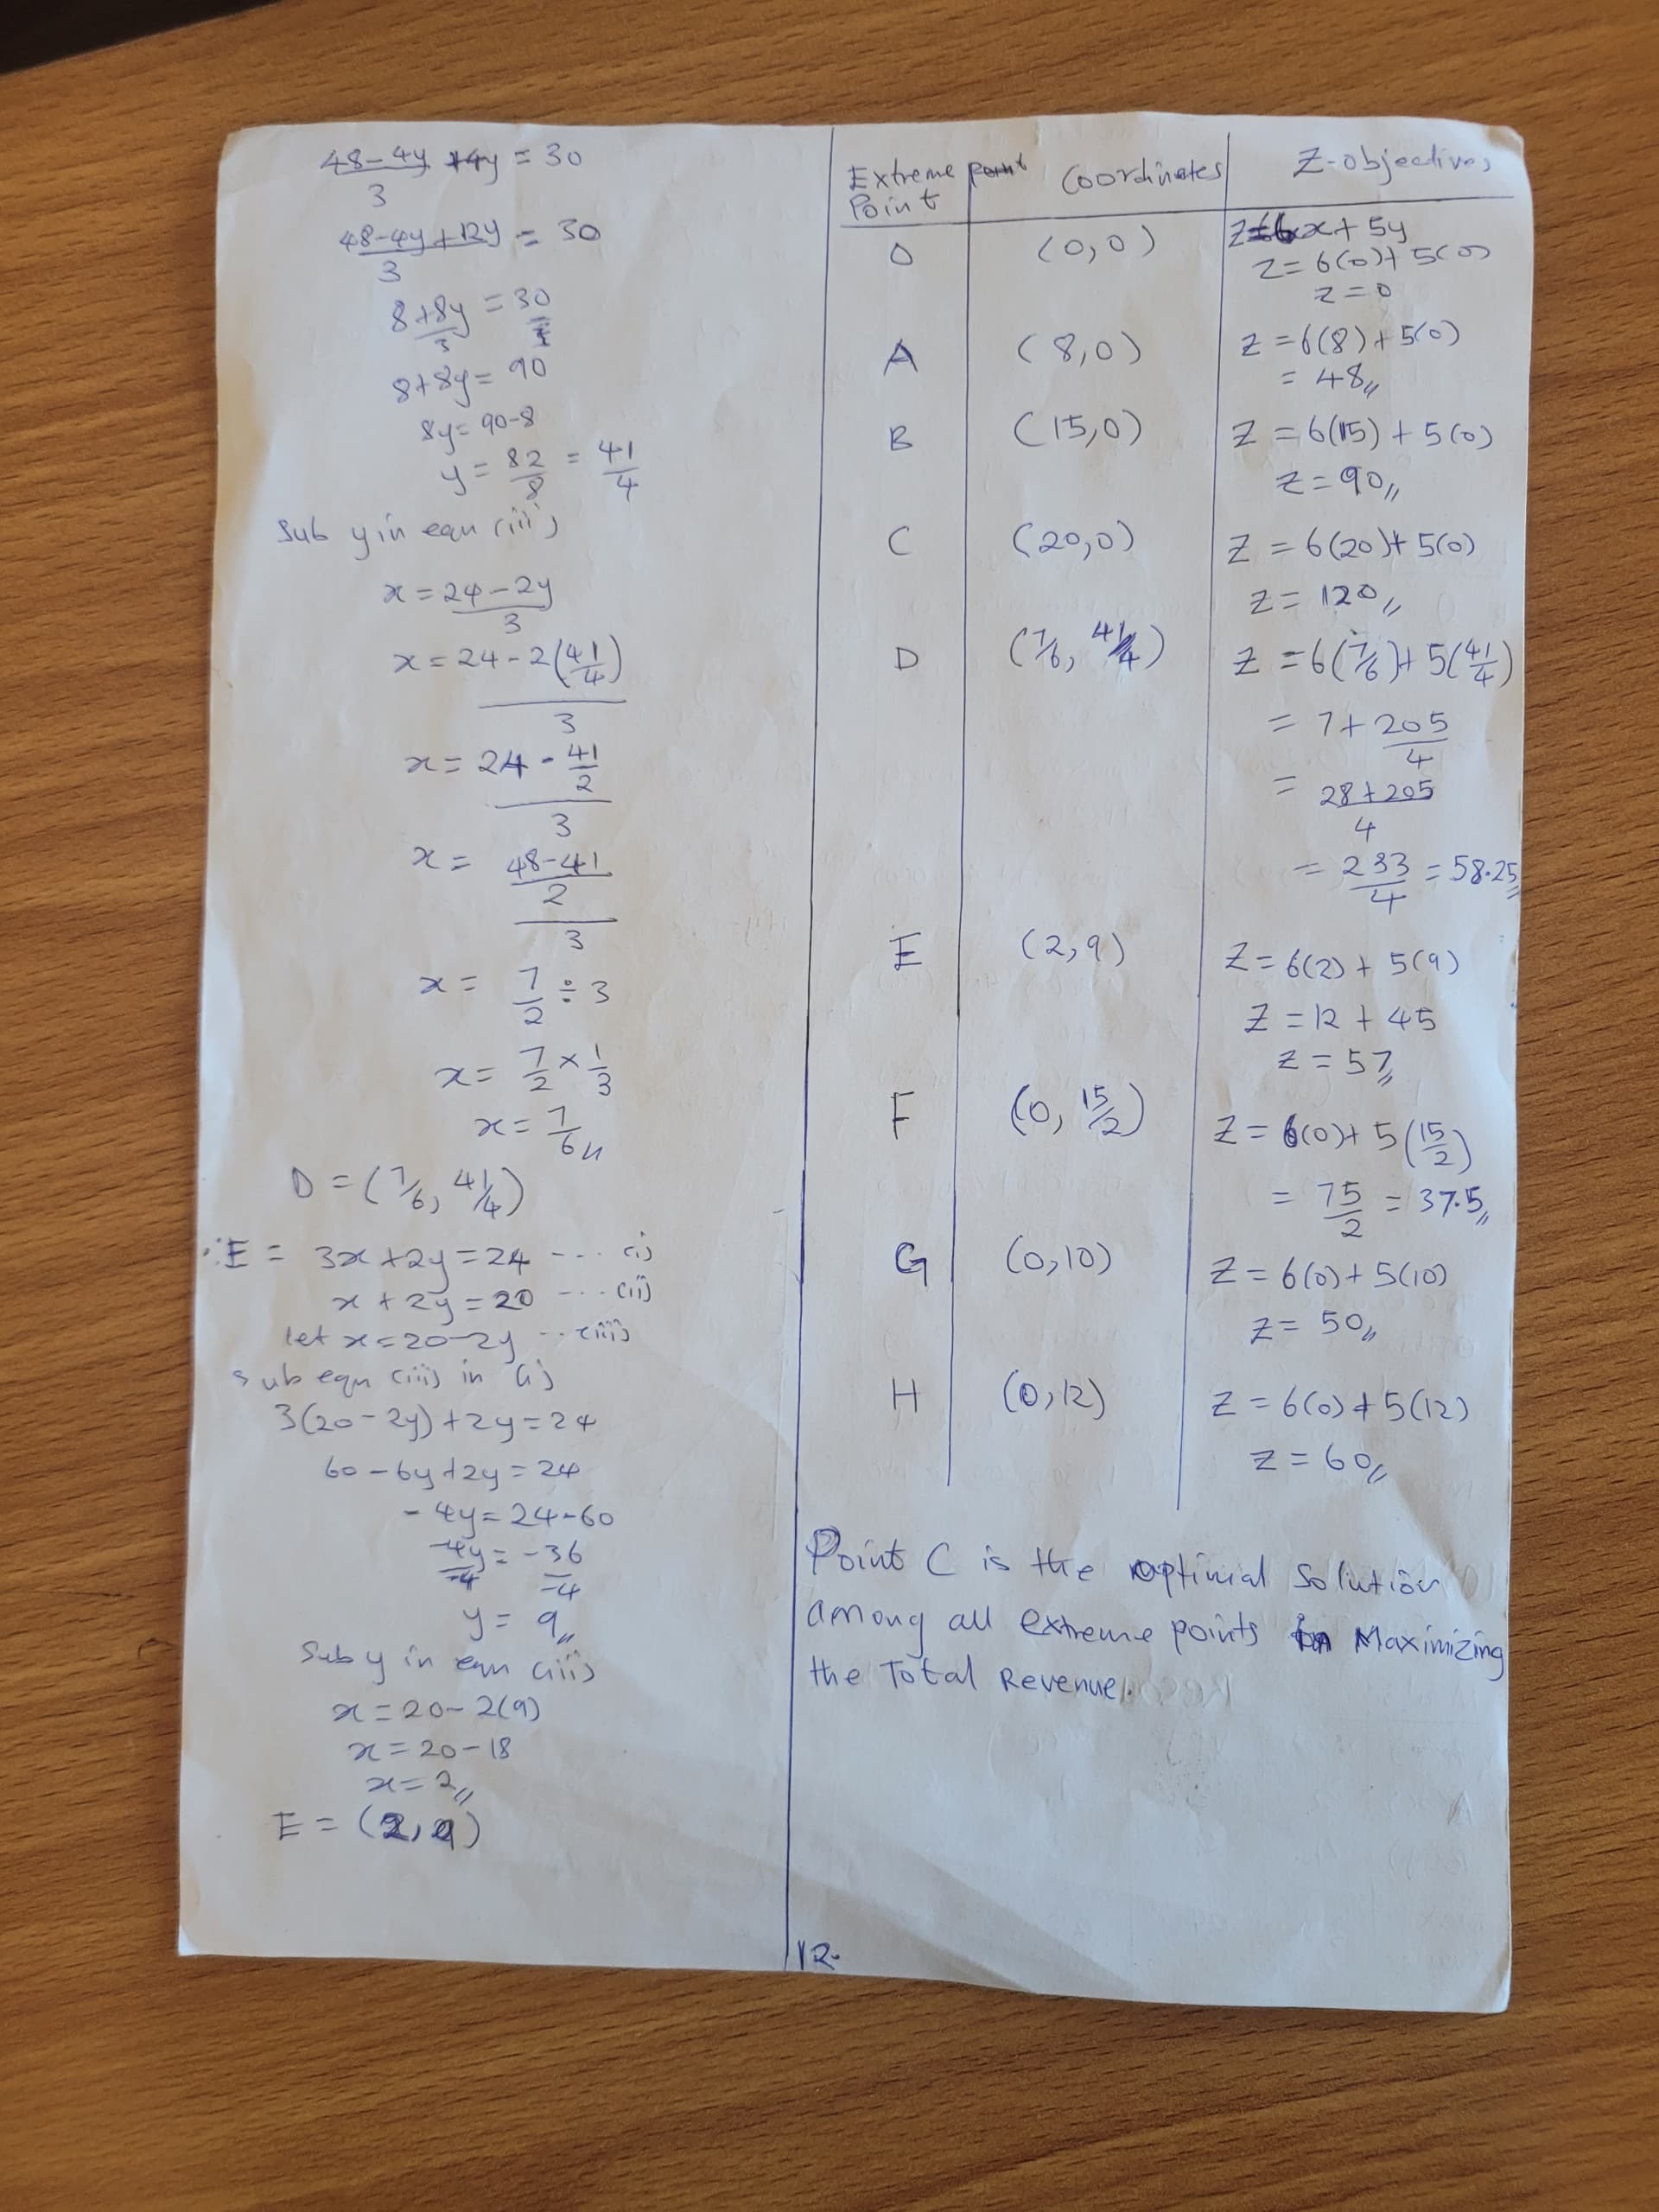 48-4y +4y = 30
3
48-4y+12y = 30
3
8+8y = 30
3
8+8y = 90
8y = 90-8
y = 82/8 = 41/4
Sub y in eqn (iii)
x = 24-2y
3
x = 24-2(41/4)
3
x = 24 - 41/2
3
x = 48-41
2
3
x = 7/2 ÷ 3
x = 7/2 × 1/3
x = 7/6,,
D = (7/6, 41/4)
∴E = 3x+2y=24 --- (i)
x+2y=20 --- (ii)
let x=20-2y --- (iii)
sub eqn (iii) in (i)
3(20-2y)+2y=24
60-6y+2y=24
-4y=24-60
-4y = -36
-4 -4
y = 9,,
Sub y in eqn (iii)
x=20-2(9)
x=20-18
x=2,,
E = (2, 9)
Extreme Point Coordinates Z-objectives
Z=6x+5y
O (0,0) Z=6(0)+5(0)
Z=0
A (8,0) Z=6(8)+5(0)
= 48,,
B (15,0) Z=6(15)+5(0)
Z=90,,
C (20,0) Z=6(20)+5(0)
Z=120,,
D (7/6, 41/4) Z=6(7/6)+5(41/4)
= 7+205/4
= 28+205
4
= 233/4 = 58.25,,
E (2,9) Z=6(2)+5(9)
Z=12+45
Z=57,,
F (0, 15/2) Z=6(0)+5(15/2)
= 75/2 = 37.5,,
G (0,10) Z=6(0)+5(10)
Z=50,,
H (0,12) Z=6(0)+5(12)
Z=60,,
Point C is the optimal Solution
among all extreme points in Maximizing
the Total Revenue.
12.